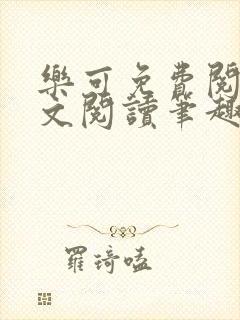 樂可免費閱
文閱讀筆趣
羅琦嗑